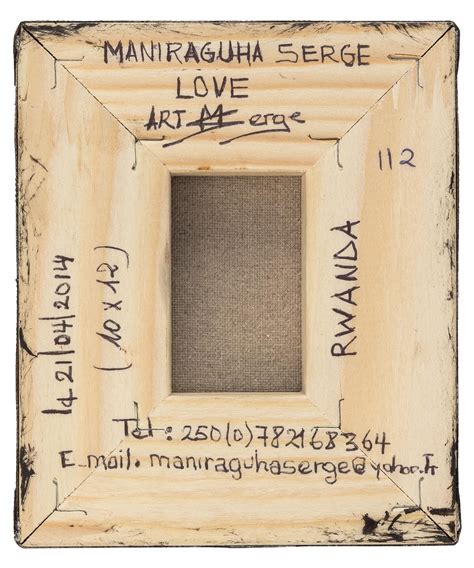 MANIRAGUHA SERGE
LOVE
ART Serge
112
RWANDA
21/04/2014
(10 x 12)
Tel: 250(0)782168364
E_mail. maniraguhaserge@yahoo.Fr